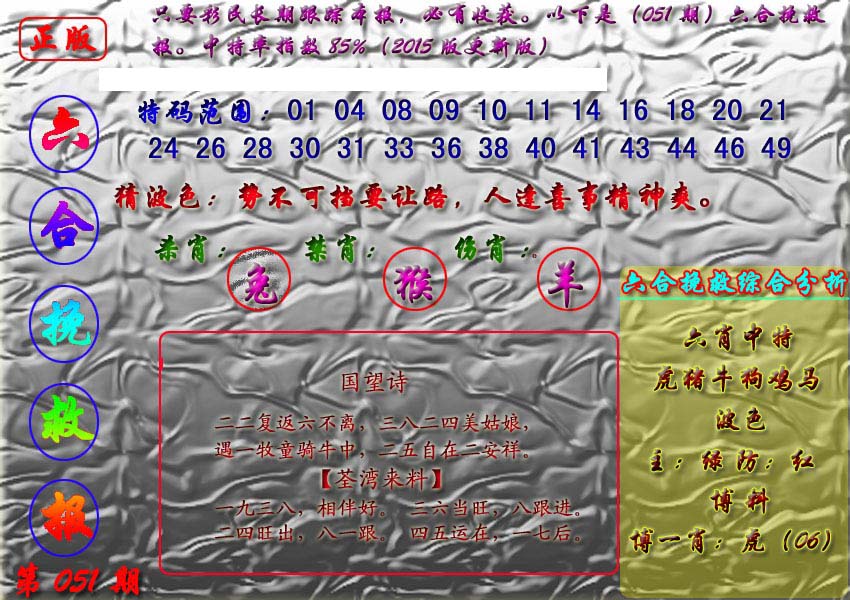 正版
只要彩民长期跟踪本报，必有收获。以下是（051期）六合挽救
报。中特率指数85%（2015版更新版）
六合挽救报
第051期
特码范围：01 04 08 09 10 11 14 16 18 20 21
24 26 28 30 31 33 36 38 40 41 43 44 46 49
猜波色：势不可挡要让路，人逢喜事精神爽。
杀肖：兔 禁肖：猴 伤肖：羊
国望诗
二二复返六不离，三八二四美姑娘，
遇一牧童骑牛中，二五自在二安祥。
【荃湾来料】
一九三八，相伴好。 三六当旺，八跟进。
二四旺出，八一跟。 四五运在，一七后。
六合挽救综合分析
六肖中特
虎猪牛狗鸡马
波色
主：绿 防：红
博料
博一肖：虎（06）